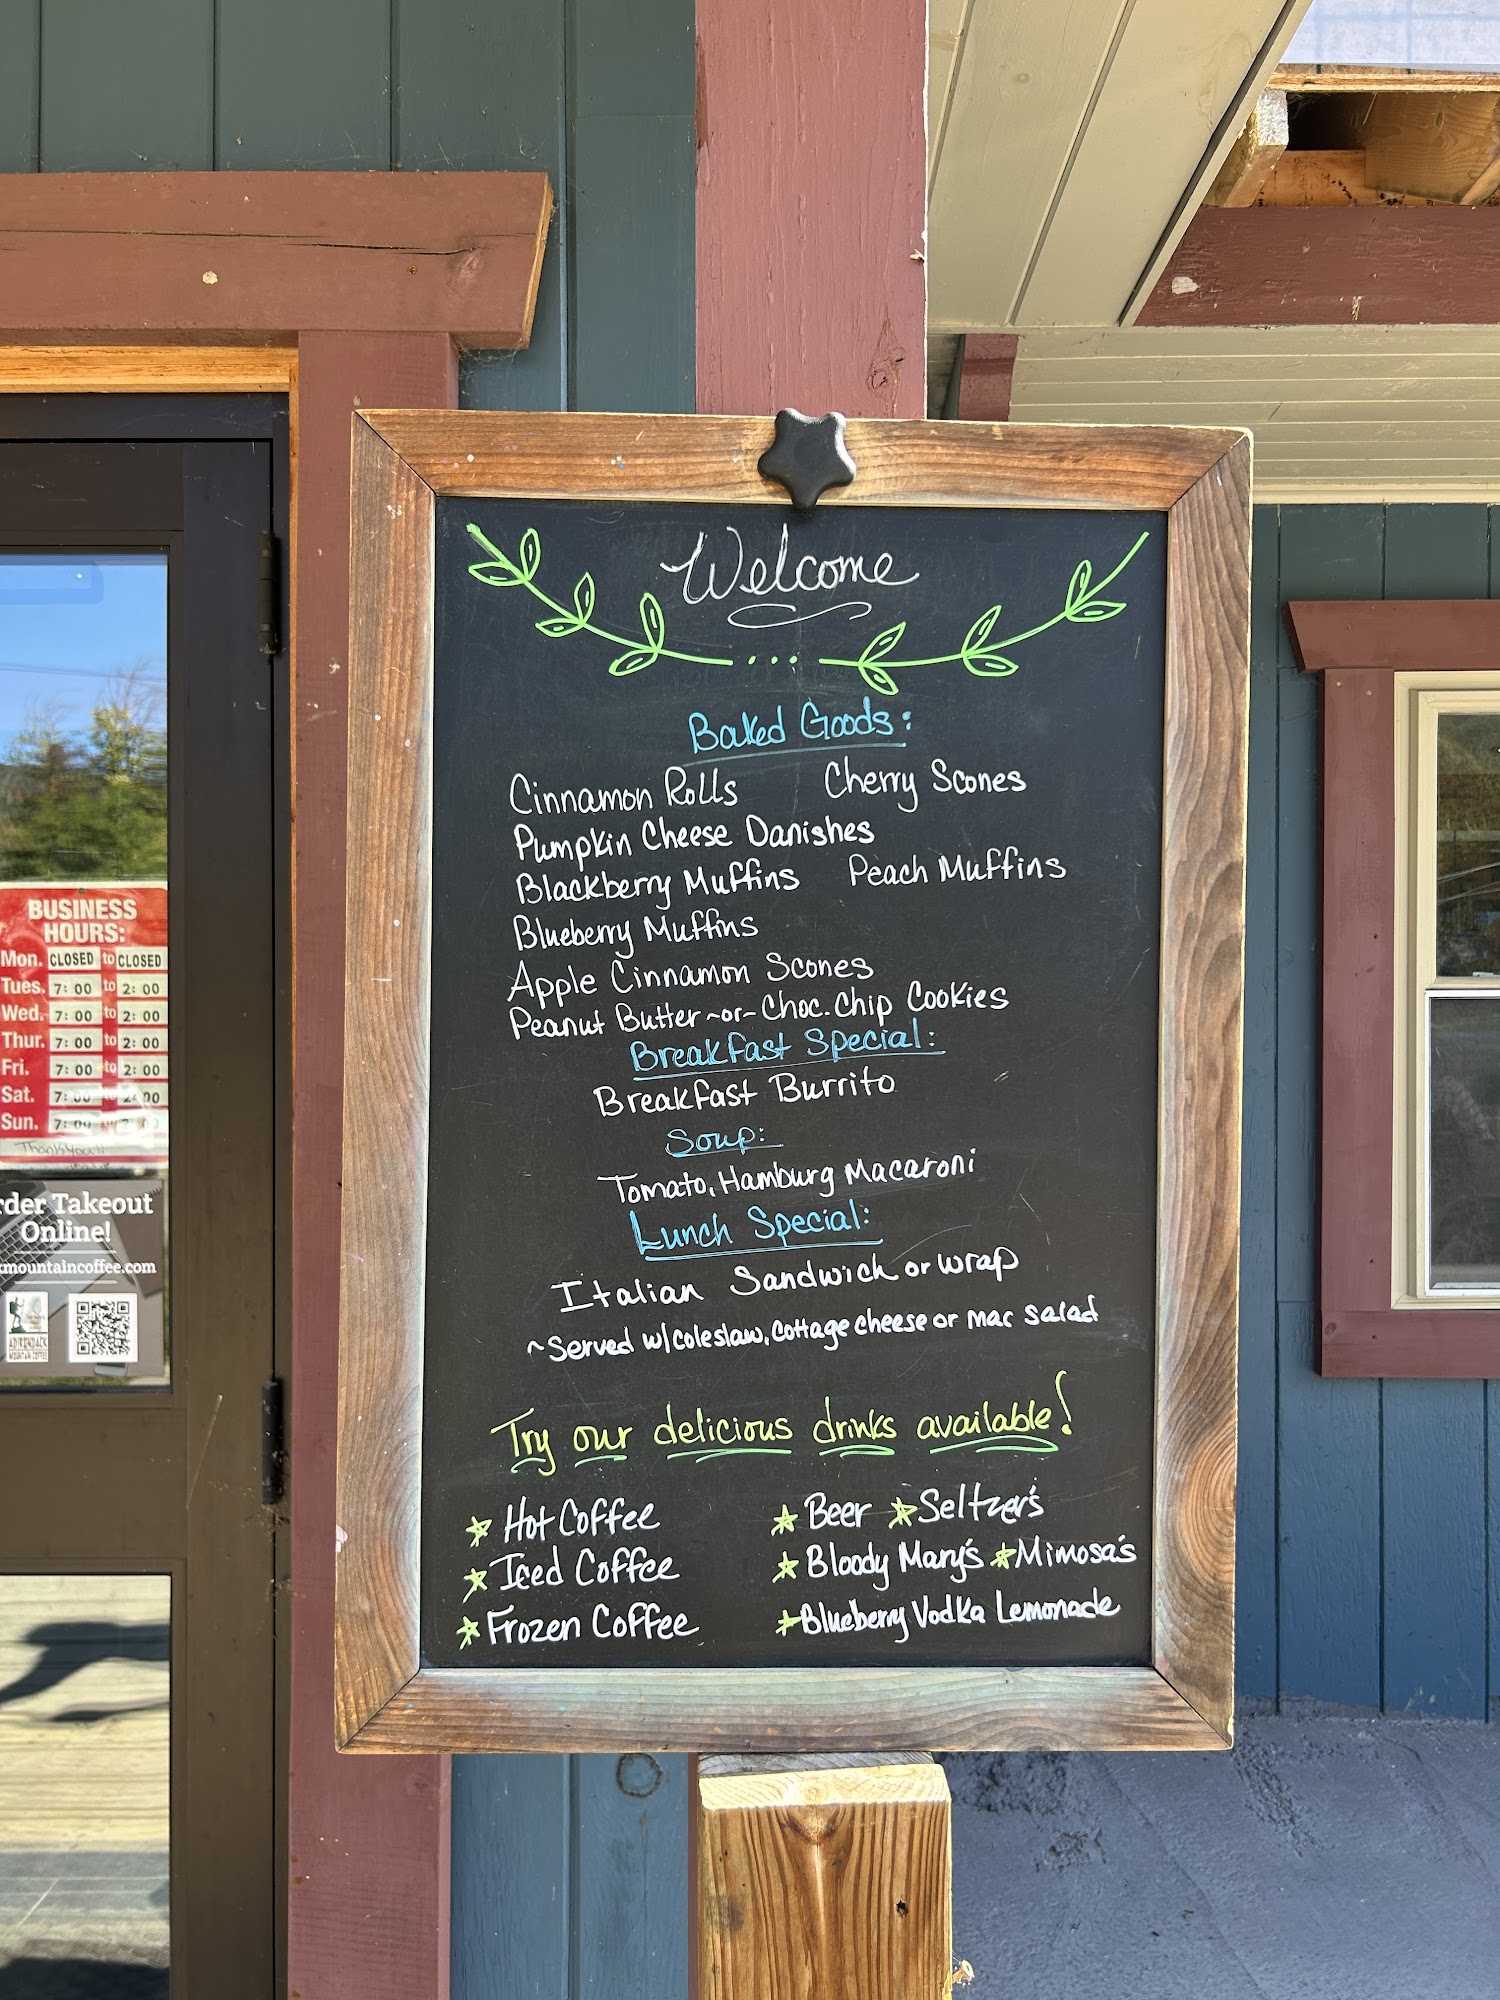 Welcome
Baked Goods:
Cinnamon Rolls Cherry Scones
Pumpkin Cheese Danishes
Blackberry Muffins Peach Muffins
Blueberry Muffins
Apple Cinnamon Scones
Peanut Butter ~or~ Choc. Chip Cookies
Breakfast Special:
Breakfast Burrito
Soup:
Tomato, Hamburg Macaroni
Lunch Special:
Italian Sandwich or wrap
~Served w/coleslaw, cottage cheese or mac salad
Try our delicious drinks available!
Hot Coffee Beer Seltzer's
Iced Coffee Bloody Mary's Mimosa's
Frozen Coffee Blueberry Vodka Lemonade
BUSINESS
HOURS:
Mon. CLOSED to CLOSED
Tues. 7:00 to 2:00
Wed. 7:00 to 2:00
Thur. 7:00 to 2:00
Fri. 7:00 to 2:00
Sat. 7:00 to 2:00
Sun. 7:00 to 2:00
Thank You!!
rder Takeout
Online!
kmountaincoffee.com
ADIRONDACK
MOUNTAIN COFFEE